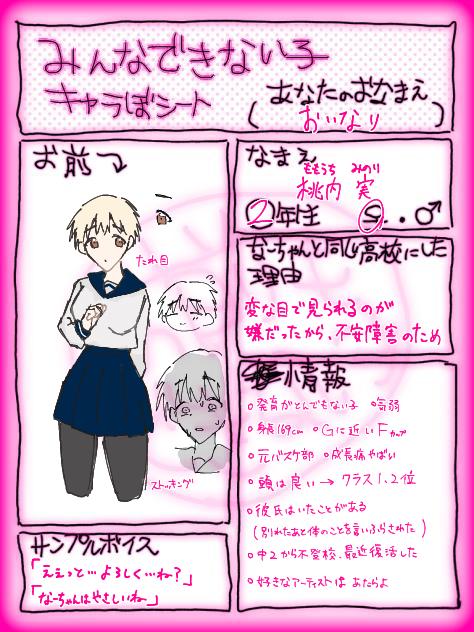 みんなできない子
キャラぼシート
あなたのおなまえ
(おいなり)
お前
たれ目
ストッキング
サンプルボイス
「ええっと…よろしく…ね?」
「なーちゃんはやさしいね」
なまえ
ももうち みのり
桃内 実
②年生
♀・♂
なーちゃんと同じ高校にした
理由
変な目で見られるのが
嫌だったから、不安障害のため
小情報
○発育がとんでもない子 ○気弱
○身長169cm ○Gに近いFカップ
○元バスケ部 ○成長痛やばい
○頭は良い→クラス1、2位
○彼氏はいたことがある
(別れたあと体のことを言いふらされた)
○中2から不登校、最近復活した
○好きなアーティストは あたらよ